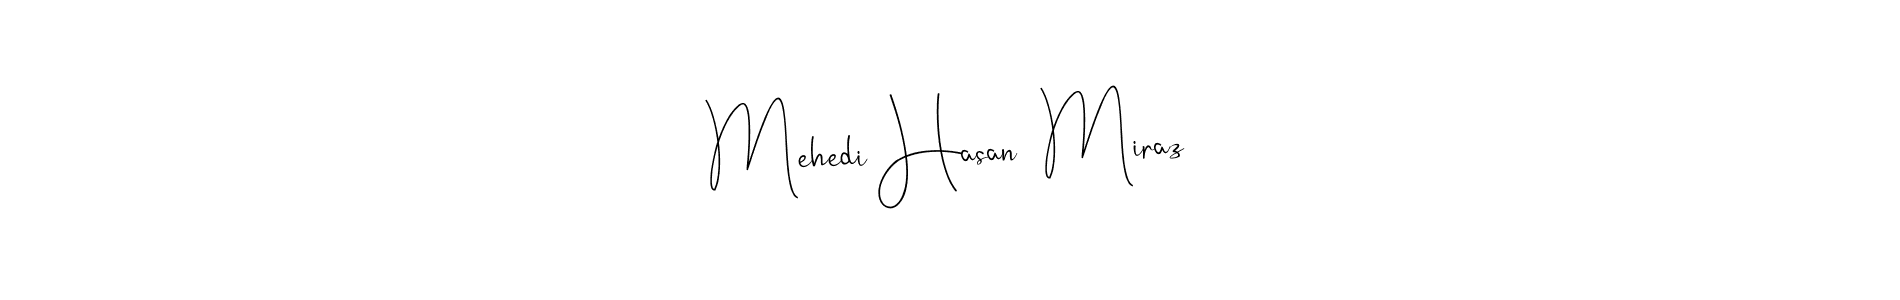 Mehedi Hasan Miraz